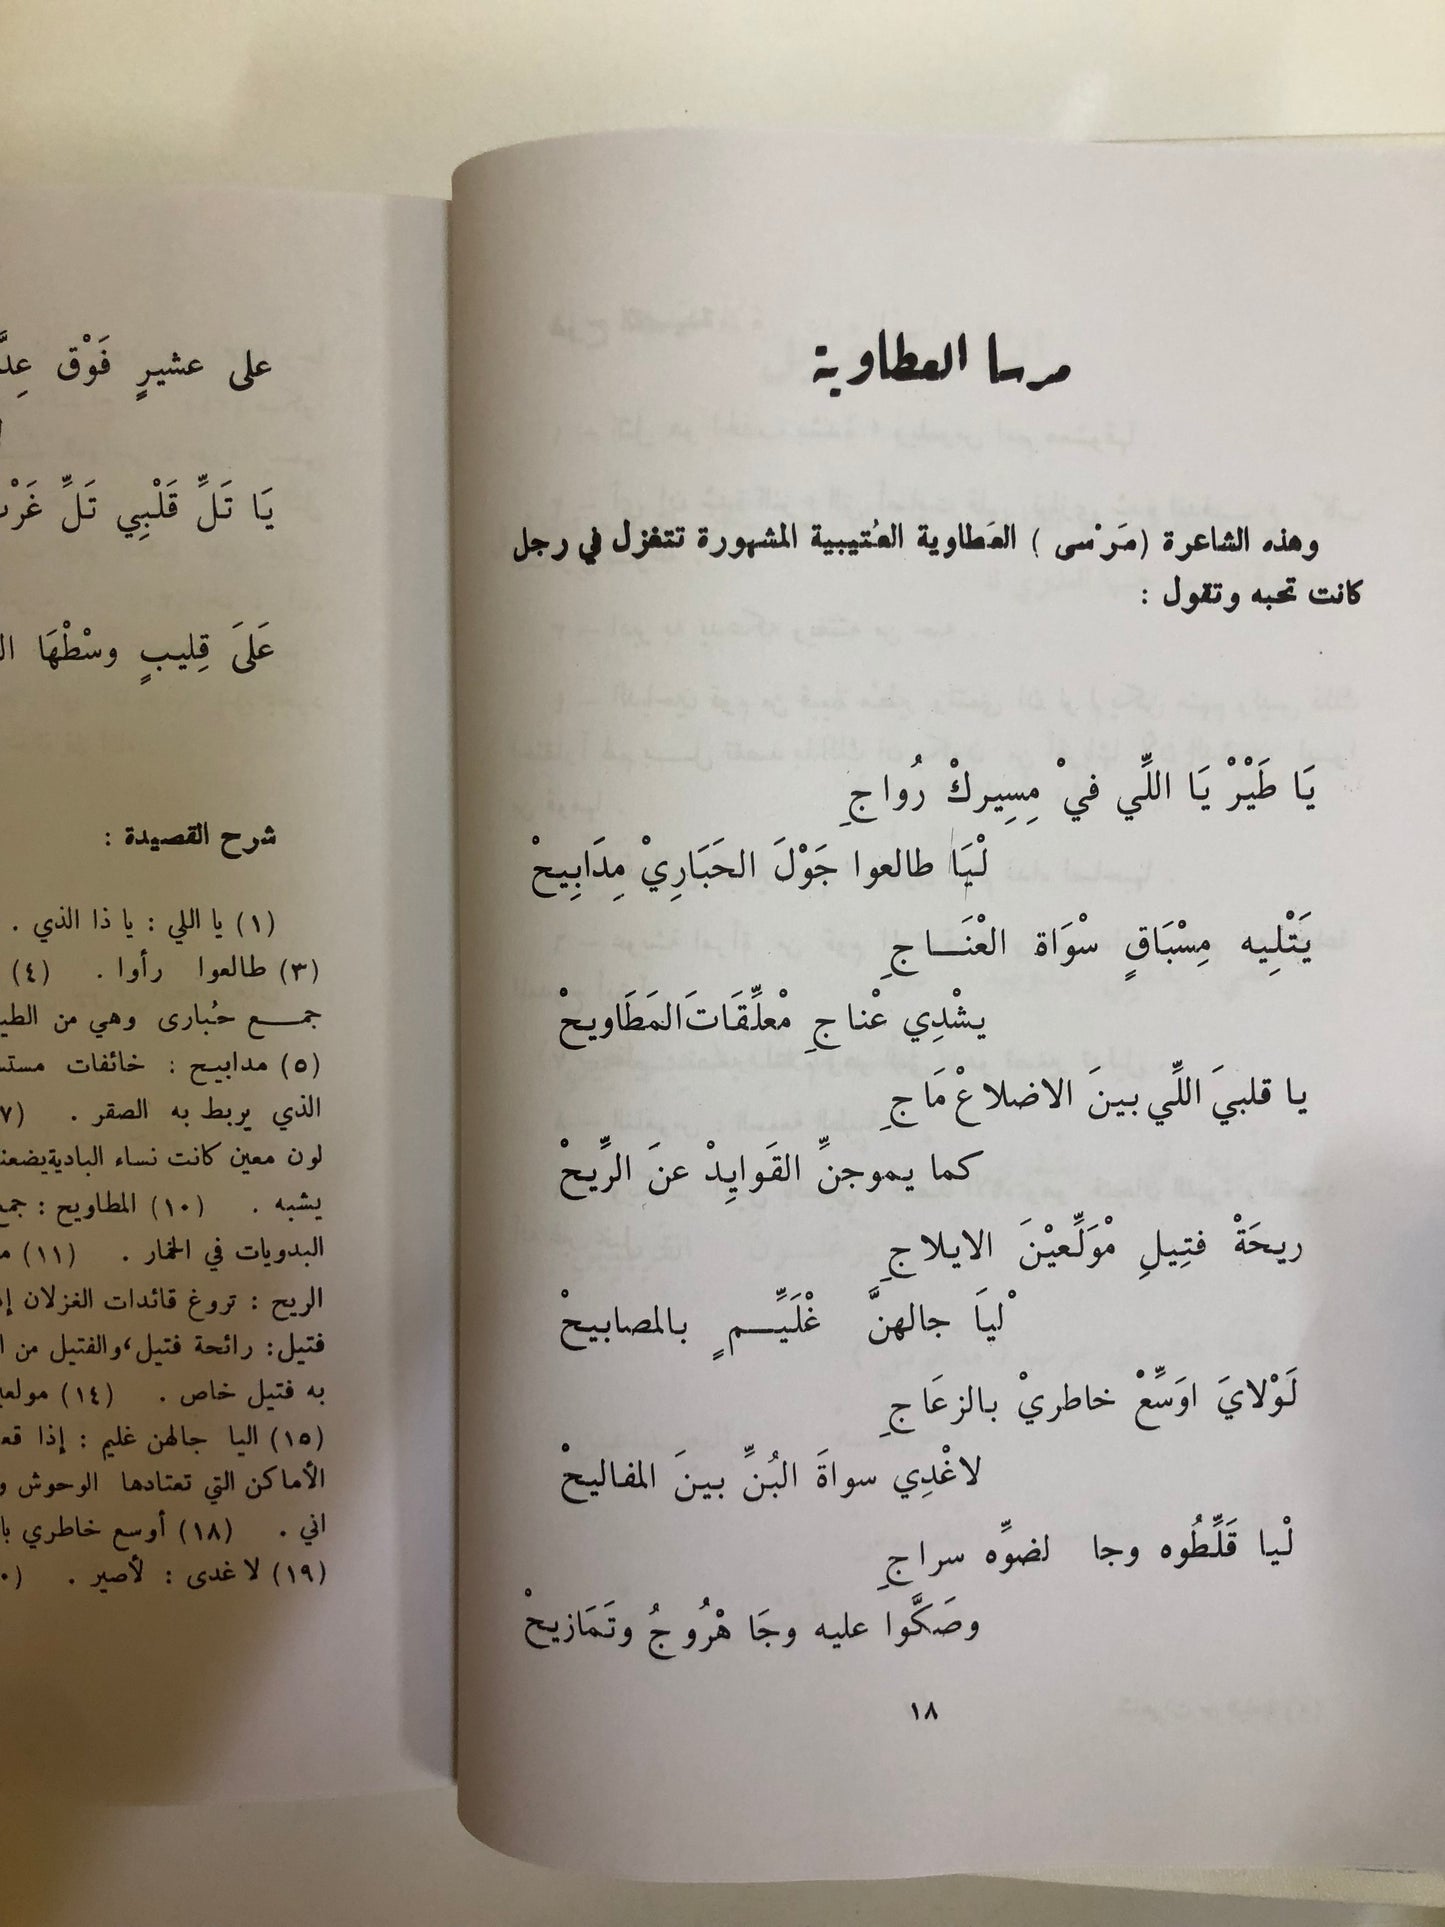 مرسا العطاوية
وهذه الشاعرة (مَرْسى) العَطاوية العُتيبية المشهورة تتغزل في رجل
كانت تحبه وتقول :
يَا طَيْرْ يَا اللِّي فيْ مِسِيركْ رُواجِ
لْيَا طالعوا جَوْلَ الحَبَارِيْ مِدَابِيحْ
يَتْلِيه مِسْبَاقٍ سْوَاة الْعْنَـــاجِ
يشْدِي عْناجِ مْعلِّقَاتَ المَطَاويحْ
يا قلبيَ اللِّي بينَ الاضلاعْ مَاجِ
كما يموجنِّ القَوايِدْ عنَ الرِّيحْ
ريحَةْ فتِيلِ مْوَلِّعيْنَ الايلاجِ
ْلياَ جالهنَّ غْلَيِّــمٍ بالمصابيحْ
لَوْلايَ اوَسِّعْ خاطريْ بالزعَاجِ
لاغْدِي سواةَ البُنِّ بينَ المفاليحْ
لْيا قَلِّطُوه وجا لضوِّه سراجِ
وصَكَّوا عليه وجَا هْرُوجُ وتَمَازيحْ
١٨
على عشيرٍ فَوْق
يَا تَلِّ قَلْبِي تَلِّ
عَلَىَ قِليبٍ وسْطْهَا
شرح القصيدة :
(١) يا اللي : يا ذا الذي .
(٣) طالعوا رأوا . (٤)
جمــع حُبارى وهي من
(٥) مدابيح : خائفات
الذي يربط به الصقر .
لون معين كانت نساء البادية
يشبه . (١٠) المطاويح :
البدويات في الخمار . (١١)
الريح : تروغ قائدات الغزلان
فتيل: رائحة فتيل، والفتيل من
به فتيل خاص . (١٤)
(١٥) اليا جالهن غليم : إذا
الأماكن التي تعتادها الوحوش
اني . (١٨) أوسع خاطري
(١٩) لا غدى : لأصير .